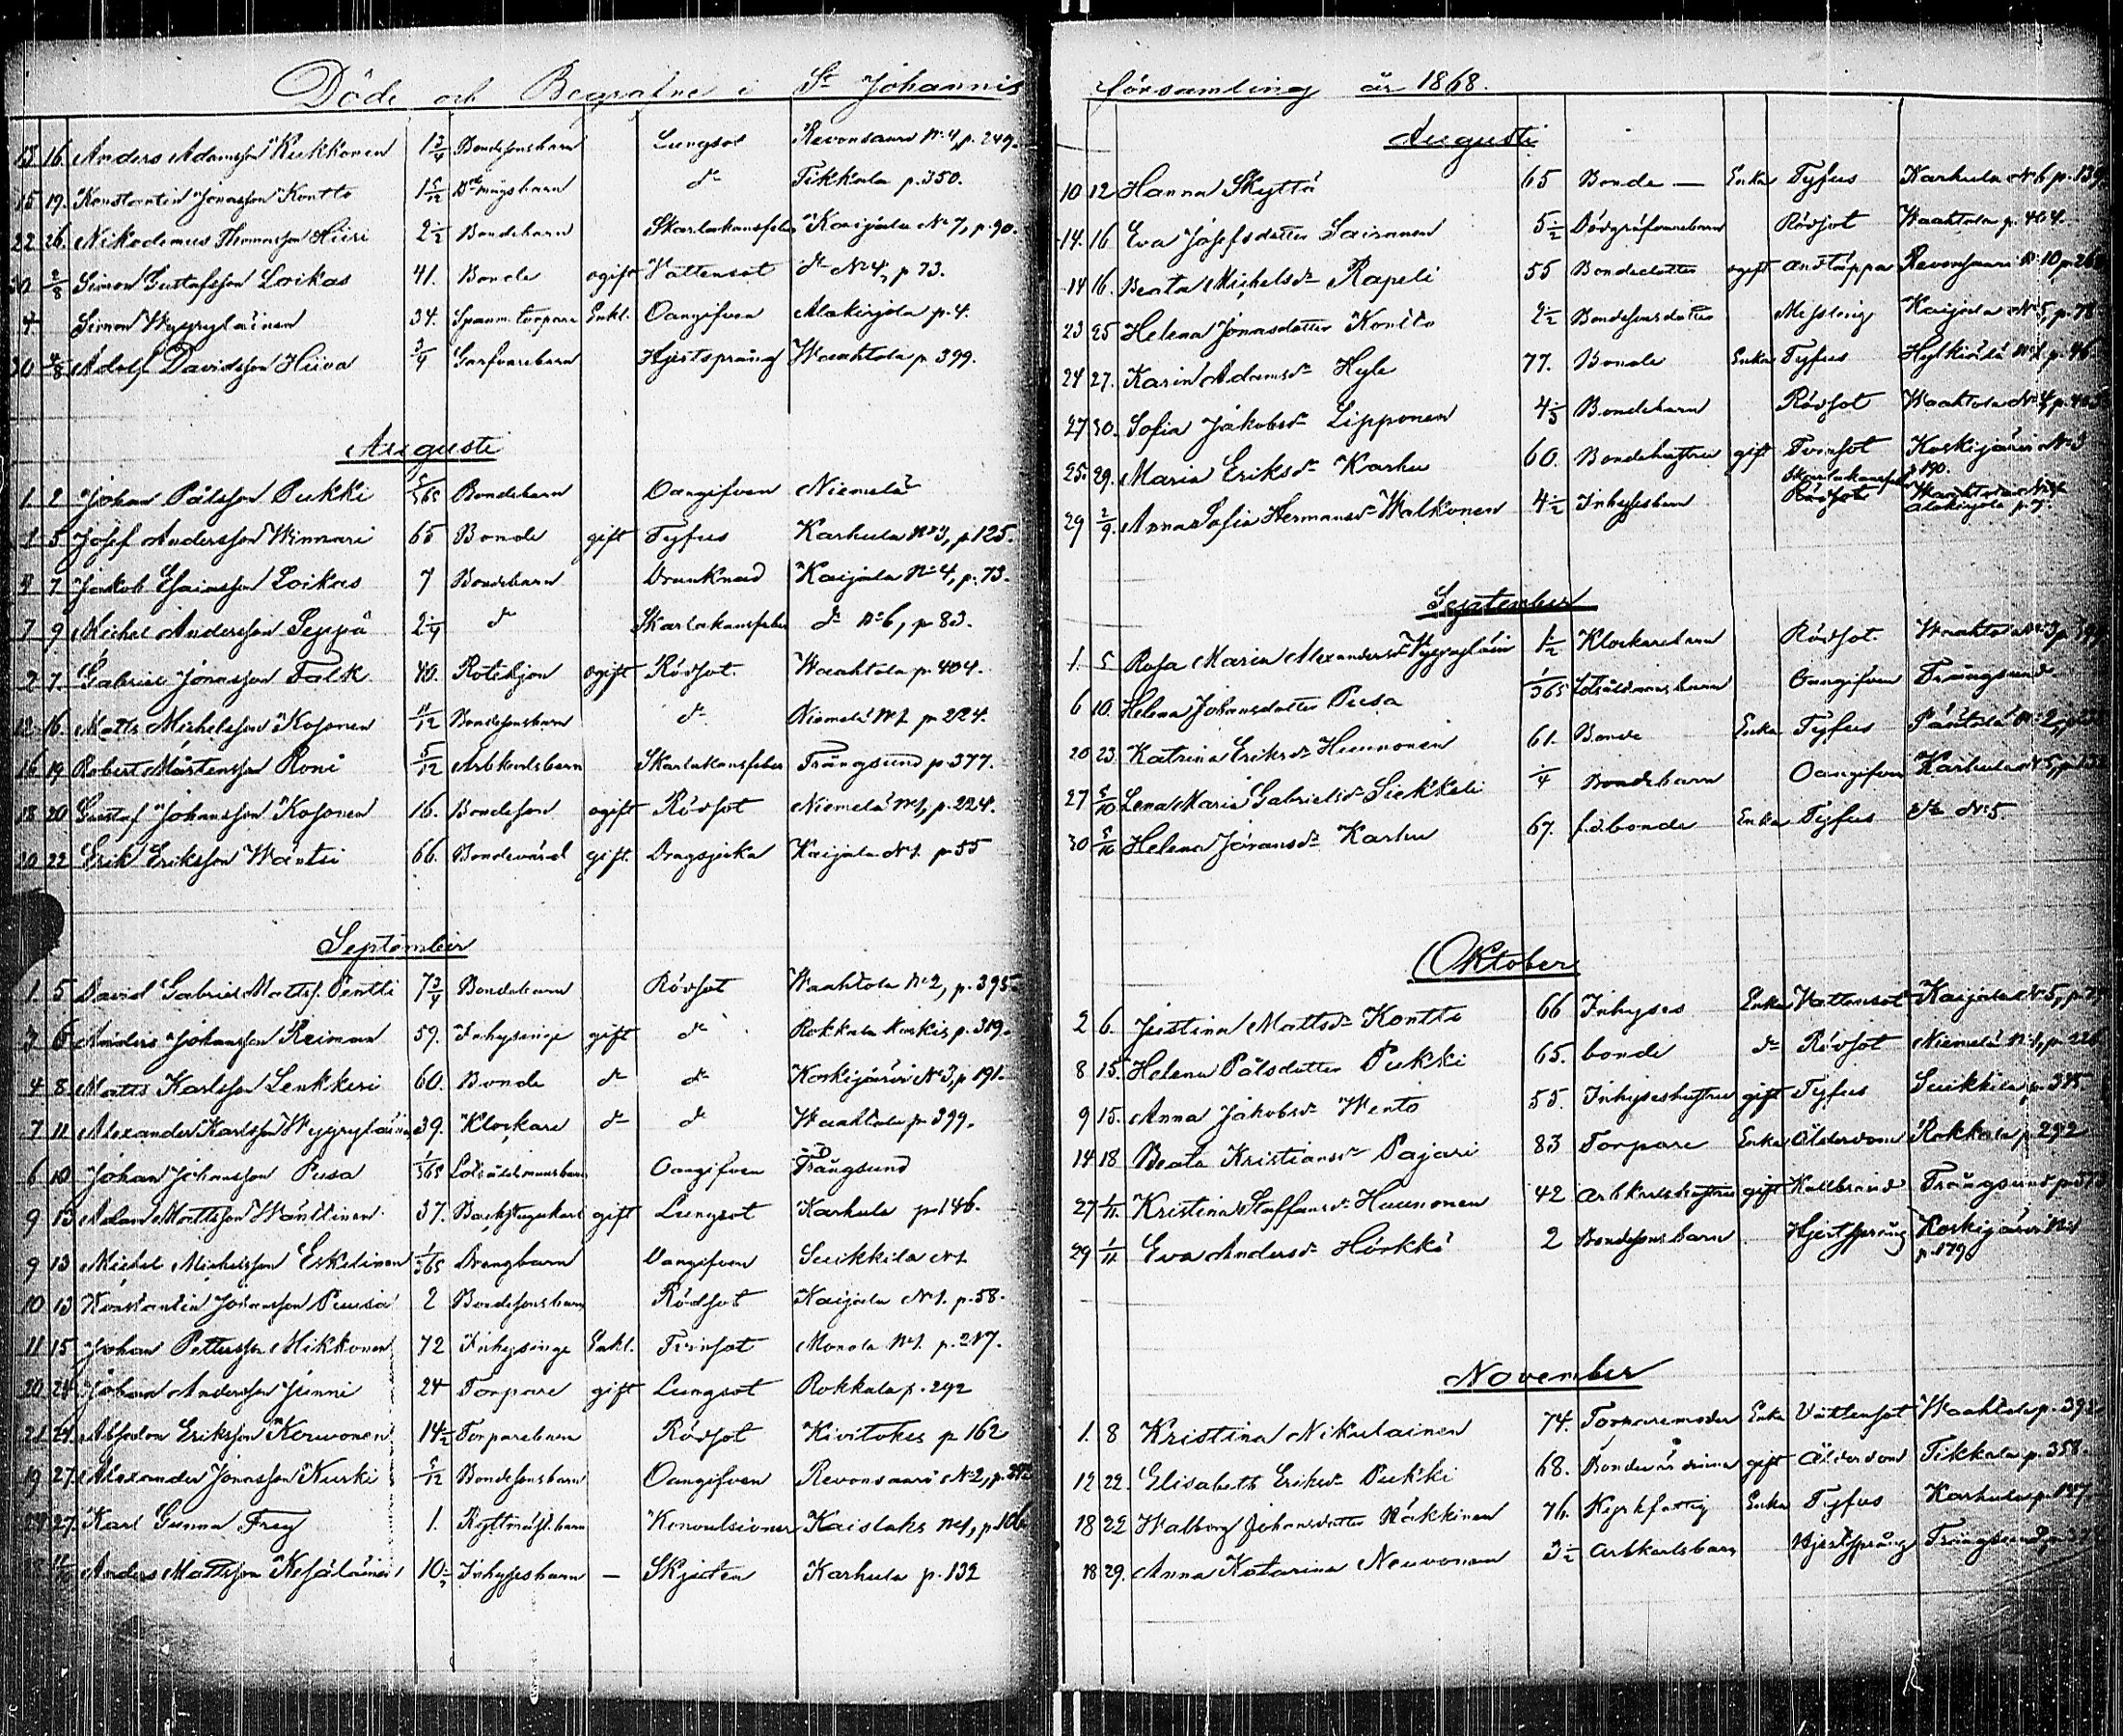 Döde och Begrafne i St Johannis
13 16. Anders Adamsson Kukkonen 1 3/4 Bondesonsbarn Lungsot Revonsaari No 4, p. 249.
15 19. Konstantin Jonasson Kontto 1 5/12 D:o mågsbarn d:o Tikkala p. 350.
22 26. Nikodemus Thomasson Hiiri 2 1/2 Bondebarn Skarlakansfeber Kaijala No 7, p. 90.
30 2/8 Simon Gustafsson Loikas 41. Bonde ogift Vattensot d:o No 4, p 73.
Simon Wyyryläinen 34. torpare Enkl. Oangifven Alakirjola p. 4.
30 4/8 Adolf Davidsson Hiiva 3/4 Garfvarebarn Hjertsprång Waahtola p. 399.
Augusti
1 2 Johan Pålsson Pukki 5/365 Bondebarn Oangifven Niemelä
1 5. Josef Andersson Winnari 65 Bonde gift Tyfus Karhula No 3, p. 125.
4 7 Jakob Esaiasson Loikas 7 Bondebarn Drunknad Kaijala No 4, p. 73.
7 9 Michel Andersson Seppä 2 1/4 d:o Skarlakansfeber d:o No 6, p 83.
2 7. Gabriel Jonasson Falk 40. Rotehjon ogift Rödsot. Waahtola p. 404.
12 16. Matts Michelsson Kosonen 11/12 Bondesonsbarn d:o Niemelä No 1. p. 224.
16 19 Robert Mårtensson Roni 5/12 Arbkarlsbarn Skarlakansfeber Trångsund p. 377.
18 20 Gustaf Johansson Kosonen 16. Bondeson ogift Rödsot Niemelä No 1, p. 224.
20 22 Erik Eriksson Wäntsi 66. Bondevärd gift. Dragsjuka Kaijala No 1. p 55
September
1 5 David Gabriel Mattss. Pentti 7 3/4 Bondebarn Rödsot Waahtola No 2, p. 395.
3 6 Anders Johansson Reiman 59. Inhysinge gift d:o Rokkala p. 319.
4 8 Matts Karlsson Lenkkeri 60. Bonde d:o d:o Koskijärvi No 3, p 191.
7 11 Alexander Karlsson Wyyryläinen 39. Klockare d:o d:o Waahtola p. 399.
6 10 Johan Johansson Pusa 1/365 Lotsåldermansbarn Oangifven Trångsund
9 13 Adam Mattsson Wänttinen 37. Backstugukarl gift Lungsot Karhula p. 146.
9 13 Michel Michelsson Eskelinen 1/365 Drängbarn Oangifven Suikkila No 1
10 13 Konstantin Johansson Puusa 2 Bondesonsbarn Rödsot Kaijala No 1. p. 58.
11 15 Johan Pettersson Mikkonen 72 Inhysinge Enkl. Tvinsot Monola No 1. p. 217.
20 24 Johan Andersson Junni 24 Torpare gift Lungsot Rokkala p. 292
21 24. Absalon Eriksson Kouvonen 14 1/2 Torparebarn Rödsot Kivitokes p 162
19 27. Alexander Jonasson Nurki 5/12 Bondesonsbarn Oangifven Revonsaari No 2, p.
24 27. Karl Gunnar Frey 1. Ryttmäst. barn Konvulsioner Kaislaks No 1, p. 106
Anders Mattsson Kesäläinen 10 1/2 Inhysesbarn — Skjuten Karhula p. 132
församling år 1868.
Augusti
10 12 Hanna Skyttä 65 Bonde — Enka Tyfus Karhula No 6 p. 139.
14. 16 Eva Josefsdotter Sairanen 5 1/2 Dödgräfvarebarn Rödsot Waahtola p. 404.
14 16. Beata Michelsd:r Rapeli 55 Bondedotter ogift Andtäppa Revonsaari No 10 p. 26
23 25 Helena Jonasdotter Kontto 2 1/2 Bondesonsdotter Messling Kaijala No 5, p. 78
24 27. Karin Adamsd:r Hyle 77. Bonde Enka Tyfus Hylkiälä No 1, p. 46.
27 30. Sofia Jakobsd:r Lipponen 4 1/3 Bondebarn Rödsot Waahtola No 4, p. 403
25. 29. Maria Eriksd:r Karhu 60. Bondehustru gift Tvinsot Koskijärvi No 3
p. 190.
29 2/9. Anna Sofia Hermansd:r Walkonen 4 1/2 Inhysesbarn Skarlakansfeber Alakirjola p. 7.
September
1. 5 Rosa Maria Alexandersd:r Wyyryläin 1/2 Klockarebarn Rödsot. Waahtola No 3 p. 399
6 10. Helena Johansdotter Pusa 1/365 Lotsåldermansbarn Oangifven Trångsund
20 23. Katrina Eriksd:r Huunonen 61. Bonde Enka Tyfus Päätilä No 2,
27 5/10 Lena Maria Gabrielsd:r Siekkeli 1/4 Bondebarn Oangifven Karhula No 5, p.
30 5/10 Helena Göransd:r Karhu 67. f.d. bonde Enka Tyfus d:o No 5.
Oktober
2 6. Justina Mattsd:r Kontto 66 Inhyses Enka Vattensot Kaijala No 5, p. 7
8 15. Helena Pålsdotter Pukki 65. bonde d:o Rödsot Niemelä No 1, p. 226
9 15. Anna Jakobsd:r Wento 55. Inhyseshustru gift Tyfus Suikkila p. 345
14 18 Beata Kristiansd:r Pajari 83 Torpare Enka Ålderdom Rokkala p. 292
27 1/11. Kristina Staffansd:r Huunonen 42 Arbkarlshustru gift Kallbrand Trångsund p. 373
29 1/11 Eva Andersd:r Hörkkö 2 Bondesonsbarn Hjertsprång Koskijärvi No 1
p. 179
November
1. 8 Kristina Nikulainen 74. Torparemoder Enka Vattensot Waahtola p. 392
12 22. Elisabeth Eriksd:r Pukki 68. Bondevärdinna gift Ålderdom Tikkala p. 358.
18 22 Walborg Johansdotter Räkkinen 76. Kyrkfattig Enka Tyfus Karhula p. 127
18 29. Anna Katarina Neuvonen 3 1/2 Arbkarlsbarn Hjertsprång Trångsund p.